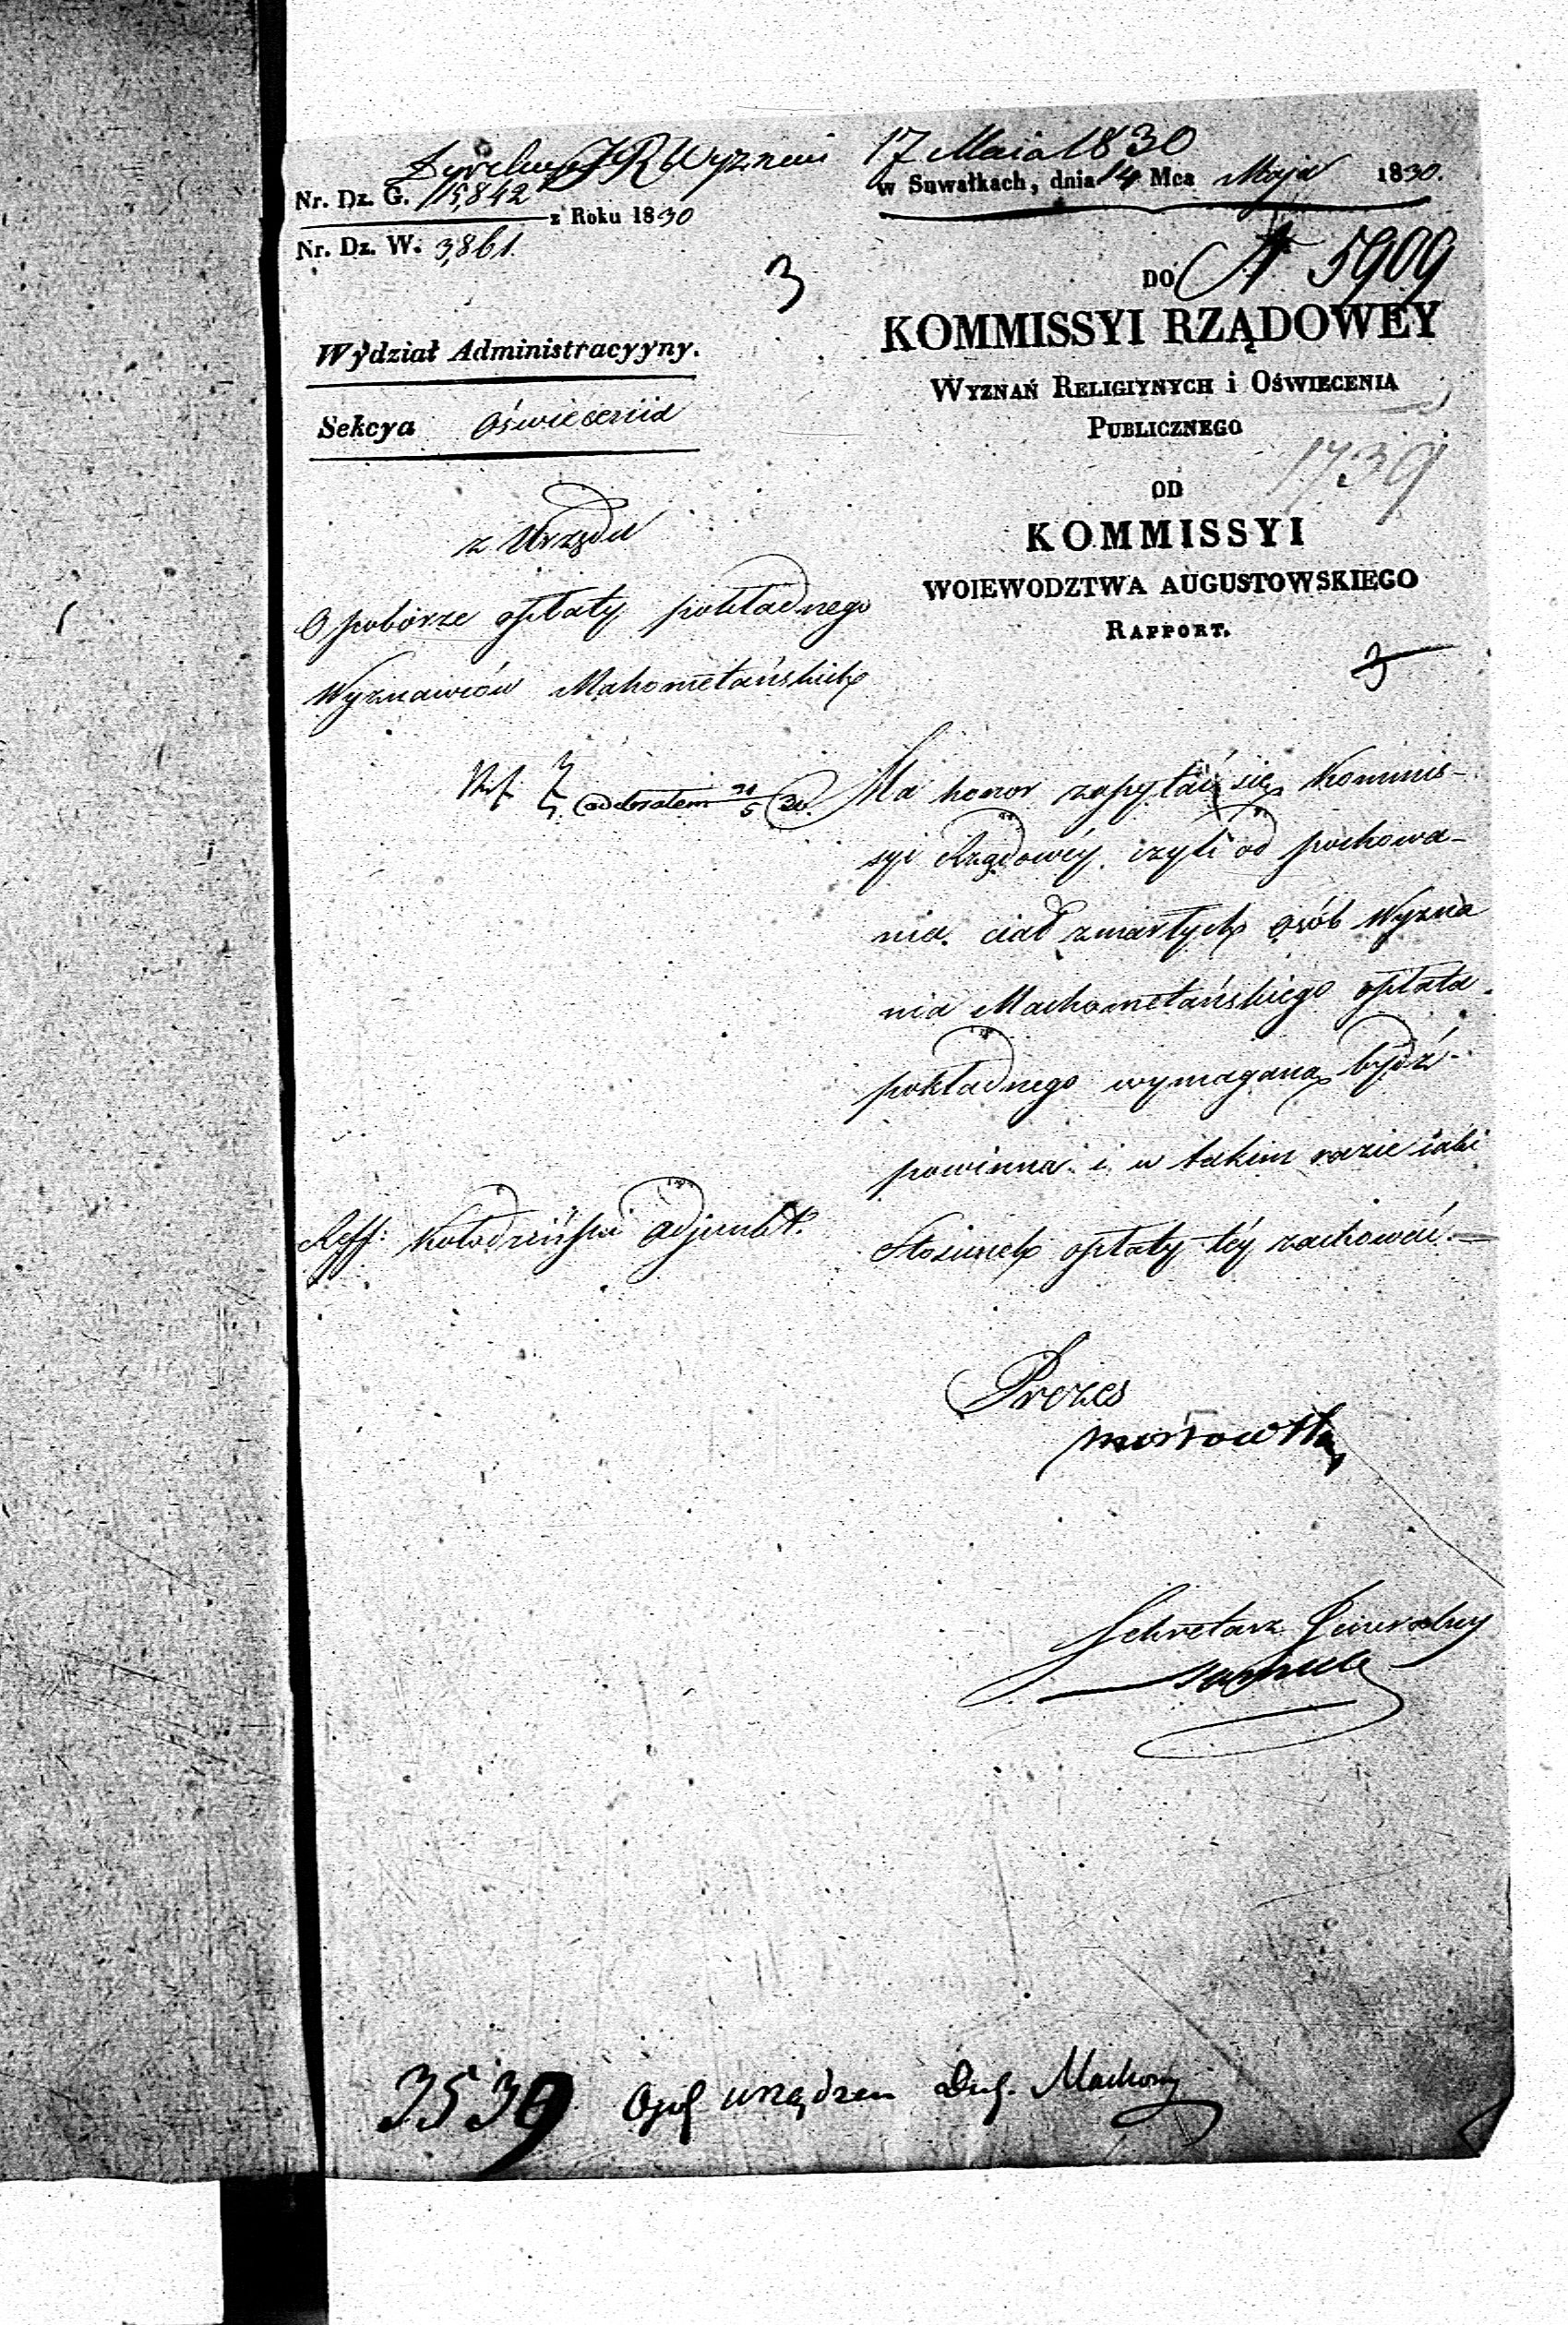 17 Maia 1830
Nr. Dz. G. 15,842
z Roku 1830
Nr. Dz. W. 3,861.
w Suwałkach, dnia 14 Mca Maja 1830.
3
DO N 5909
KOMMISSYI RZĄDOWEY
WYZNAŃ RELIGIYNYCH i OŚWIECENIA
PUBLICZNEGO
1739
OD
KOMMISSYI
WOIEWODZTWA AUGUSTOWSKIEGO
RAPPORT.
3
Wydział Administracyyny.
Sekcya Oświecenia
z Urzędu
O poborze opłaty pokładnego
Wyznawców Mahometańskich
Ma honor zapytać się Kommis-
syi Rządowéy, czyli od pochowa-
nia ciał zmarłych osób Wyzna
nia Machometańskiego opłata
pokładnego wymaganą bydź
powinna i w takim razie iaki
Stosunek opłaty téy zachować.—
Reff: Kołodziński Adjunkt.
Prezes
Sekretarz Generalny
3539 urządzen Duch. Machom